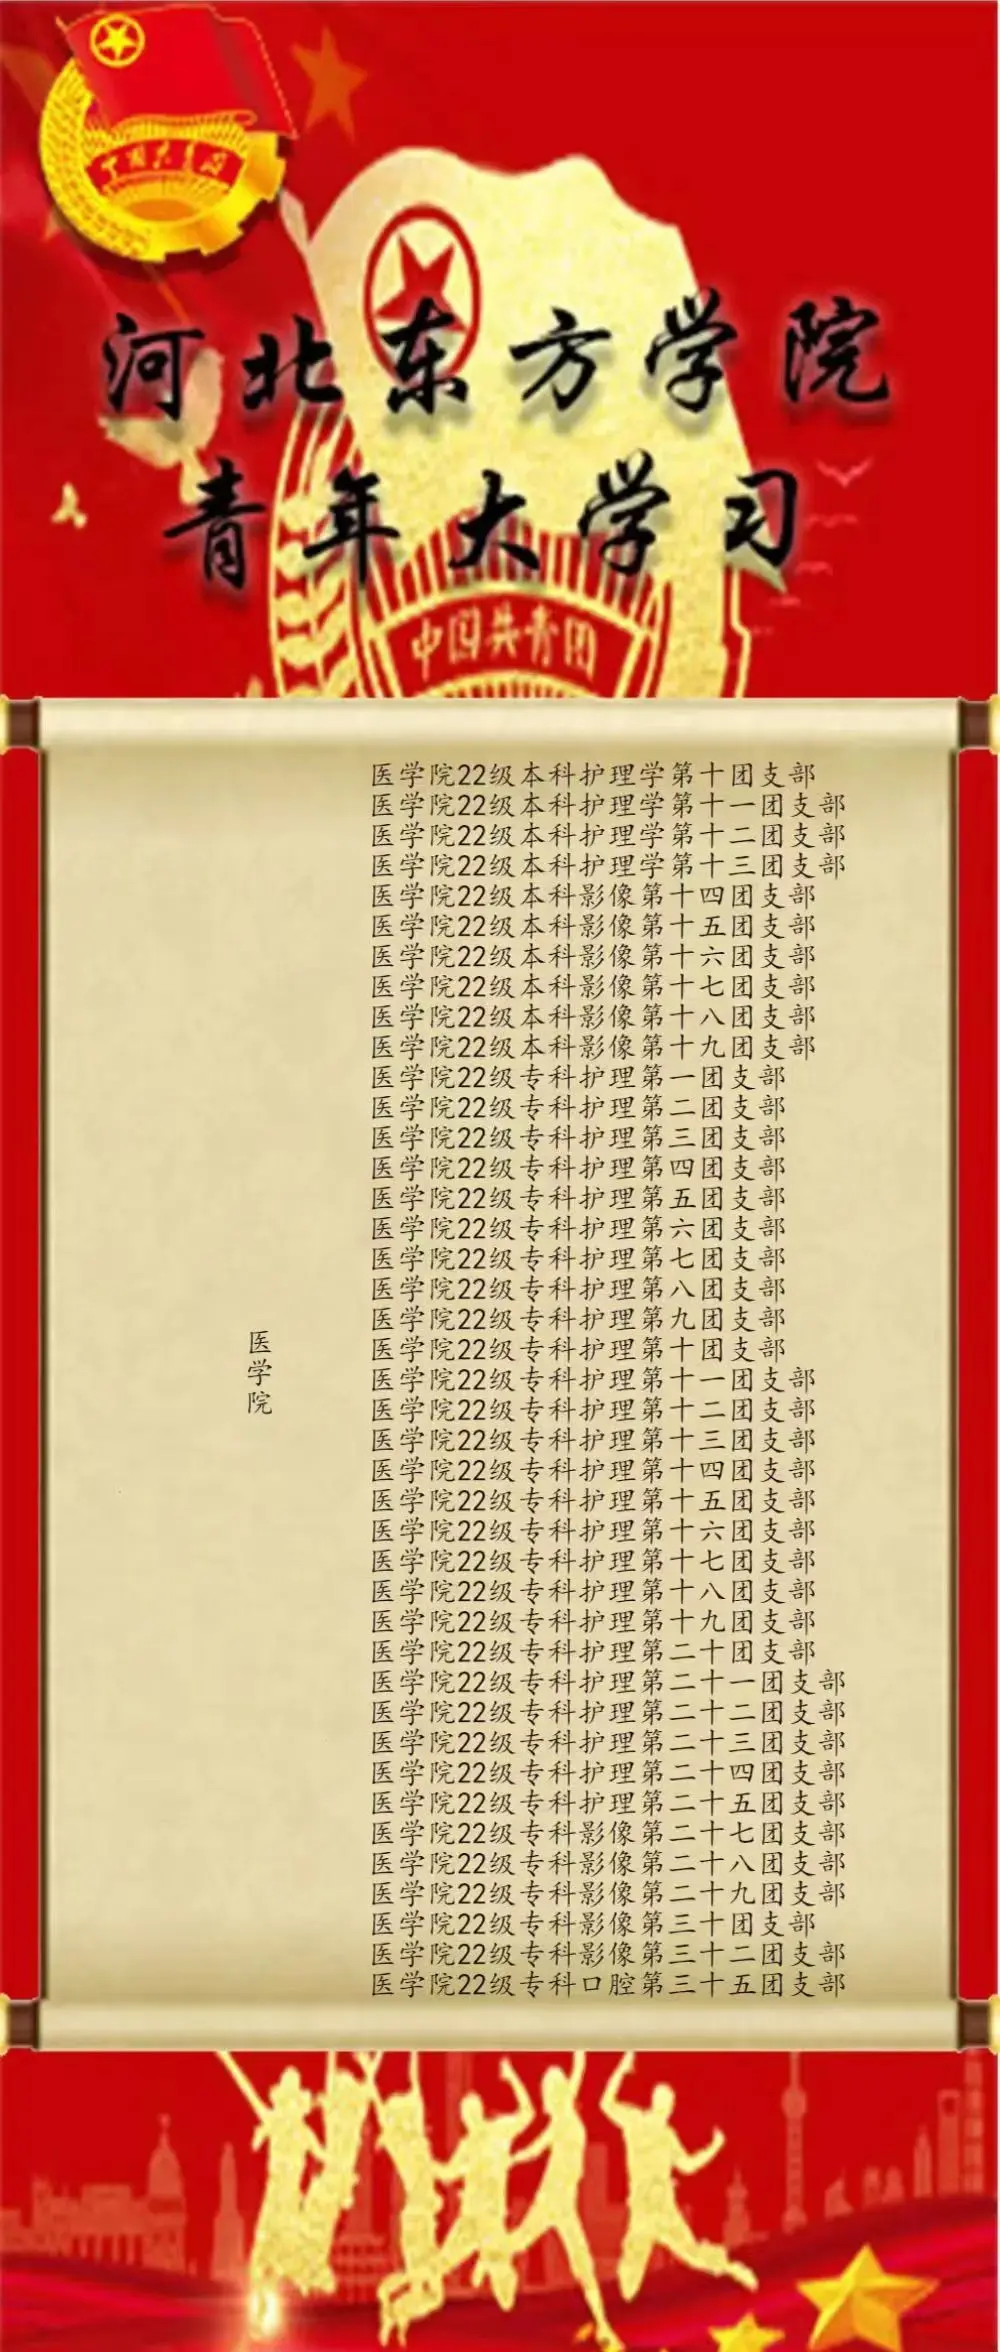 中国共青团
河北东方学院
青年大学习
中国共青团
医学院
医学院22级本科护理学第十团支部
医学院22级本科护理学第十一团支部
医学院22级本科护理学第十二团支部
医学院22级本科护理学第十三团支部
医学院22级本科影像第十四团支部
医学院22级本科影像第十五团支部
医学院22级本科影像第十六团支部
医学院22级本科影像第十七团支部
医学院22级本科影像第十八团支部
医学院22级本科影像第十九团支部
医学院22级专科护理第一团支部
医学院22级专科护理第二团支部
医学院22级专科护理第三团支部
医学院22级专科护理第四团支部
医学院22级专科护理第五团支部
医学院22级专科护理第六团支部
医学院22级专科护理第七团支部
医学院22级专科护理第八团支部
医学院22级专科护理第九团支部
医学院22级专科护理第十团支部
医学院22级专科护理第十一团支部
医学院22级专科护理第十二团支部
医学院22级专科护理第十三团支部
医学院22级专科护理第十四团支部
医学院22级专科护理第十五团支部
医学院22级专科护理第十六团支部
医学院22级专科护理第十七团支部
医学院22级专科护理第十八团支部
医学院22级专科护理第十九团支部
医学院22级专科护理第二十团支部
医学院22级专科护理第二十一团支部
医学院22级专科护理第二十二团支部
医学院22级专科护理第二十三团支部
医学院22级专科护理第二十四团支部
医学院22级专科护理第二十五团支部
医学院22级专科影像第二十七团支部
医学院22级专科影像第二十八团支部
医学院22级专科影像第二十九团支部
医学院22级专科影像第三十团支部
医学院22级专科影像第三十二团支部
医学院22级专科口腔第三十五团支部